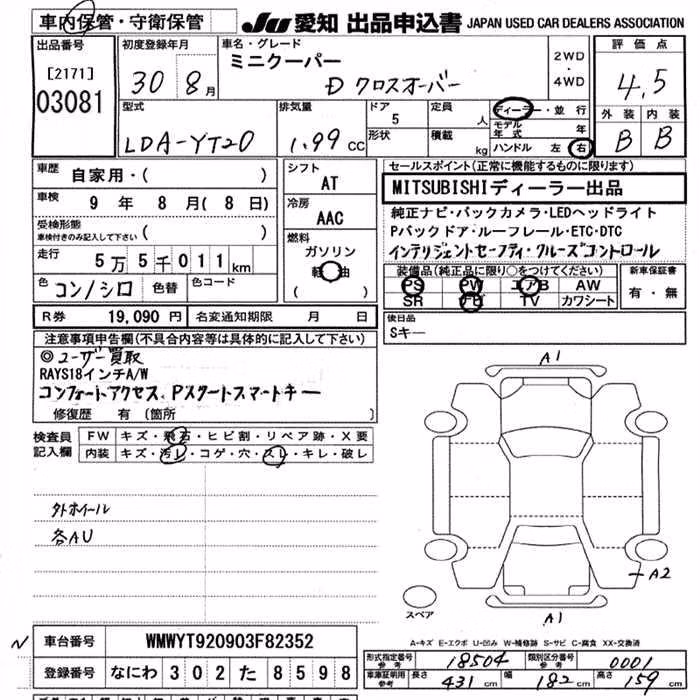 車内保管・守衛保管
JU 愛知 出品申込書 JAPAN USED CAR DEALERS ASSOCIATION
出品番号
[2171]
03081
初度登録年月
30 8月
車名・グレード
ミニクーパー
D クロスオーバー
2WD
・
4WD
評価点
4.5
外装 内装
B B
型式
LDA-YT20
排気量
1.99 CC
ドア
5
形状
定員
人
積載
kg
ディーラー・並行
モデル年式 年
ハンドル 左 右
車歴
自家用・( )
車検
9 年 8 月 ( 8 日)
受検形態
車検付きのみ記入して下さい ( )
走行
5万5千011km
色
コン/シロ
色替
色コード
R券 19,090 円
名変通知期限 月 日
シフト
AT
冷房
AAC
燃料
ガソリン
軽油
( )
セールスポイント(正常に機能するものに限ります)
MITSUBISHIディーラー出品
純正ナビ・バックカメラ・LEDヘッドライト
Pバックドア・ルーフレール・ETC・DTC
インテリジェントセーフティ・クルーズコントロール
装備品(純正品に限り○をつけてください)
PS PW エアB AW
SR TV カワシート
新車保証書
有・無
後日品
Sキー
注意事項申告欄(不具合内容等は具体的に記入して下さい)
◎ユーザー買取
RAYS18インチA/W
コンフォートアクセス、Pスタートスマートキー
修復歴 有 (箇所 )
検査員
記入欄
FW キズ・飛石・ヒビ割・リペア跡・X要
内装 キズ・汚レ・コゲ・穴・スレ・キレ・破レ
外ホイール
各AU
A1
A2
スペア
A1
A-キズ E-エクボ U-凹み W-補修跡 S-サビ C-腐食 XX-交換済
車台番号 WMWYT920903F82352
登録番号 なにわ 302 た 8598
形式指定番号 参考 18504
類別区分番号 参考 0001
車庫証明用 参考
長さ 431 cm
幅 182 cm
高さ 159 cm